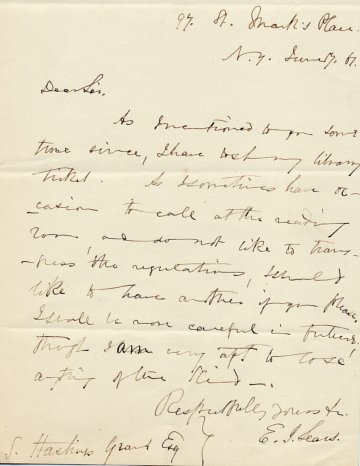 97. St. Mark's Place.
N.Y. June 7. 61.
Dear Sir,
As I mentioned to you some
time since, I have lost my library
ticket. As I sometimes have oc-
casion to call at the reading
room, and do not like to trans-
-gress the regulations, I should
like to have another if you please.
I shall be more careful in future
though I am very apt to lose
anything of the kind.
Respectfully yours &c.
E. J. Sears.
S. Hastings Grant Esq